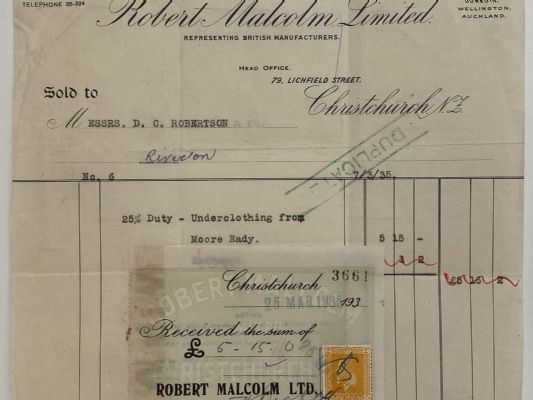 TELEPHONE 35-324
Robert Malcolm, Limited.
REPRESENTING BRITISH MANUFACTURERS.
DUNEDIN,
WELLINGTON,
AUCKLAND.
HEAD OFFICE.
79, LICHFIELD STREET,
Sold to
Christchurch, N.Z.
MESSRS. D. C. ROBERTSON & CO.
Riverton
DUPLICATE
No. 6 7/3/35.
25% Duty - Underclothing from
Moore Eady. 5 15 -
1 2
£5 16 2
3661
Christchurch 193
25 MAR 1935
Received the sum of
£ 5 - 15. 0
ROBERT MALCOLM LTD.